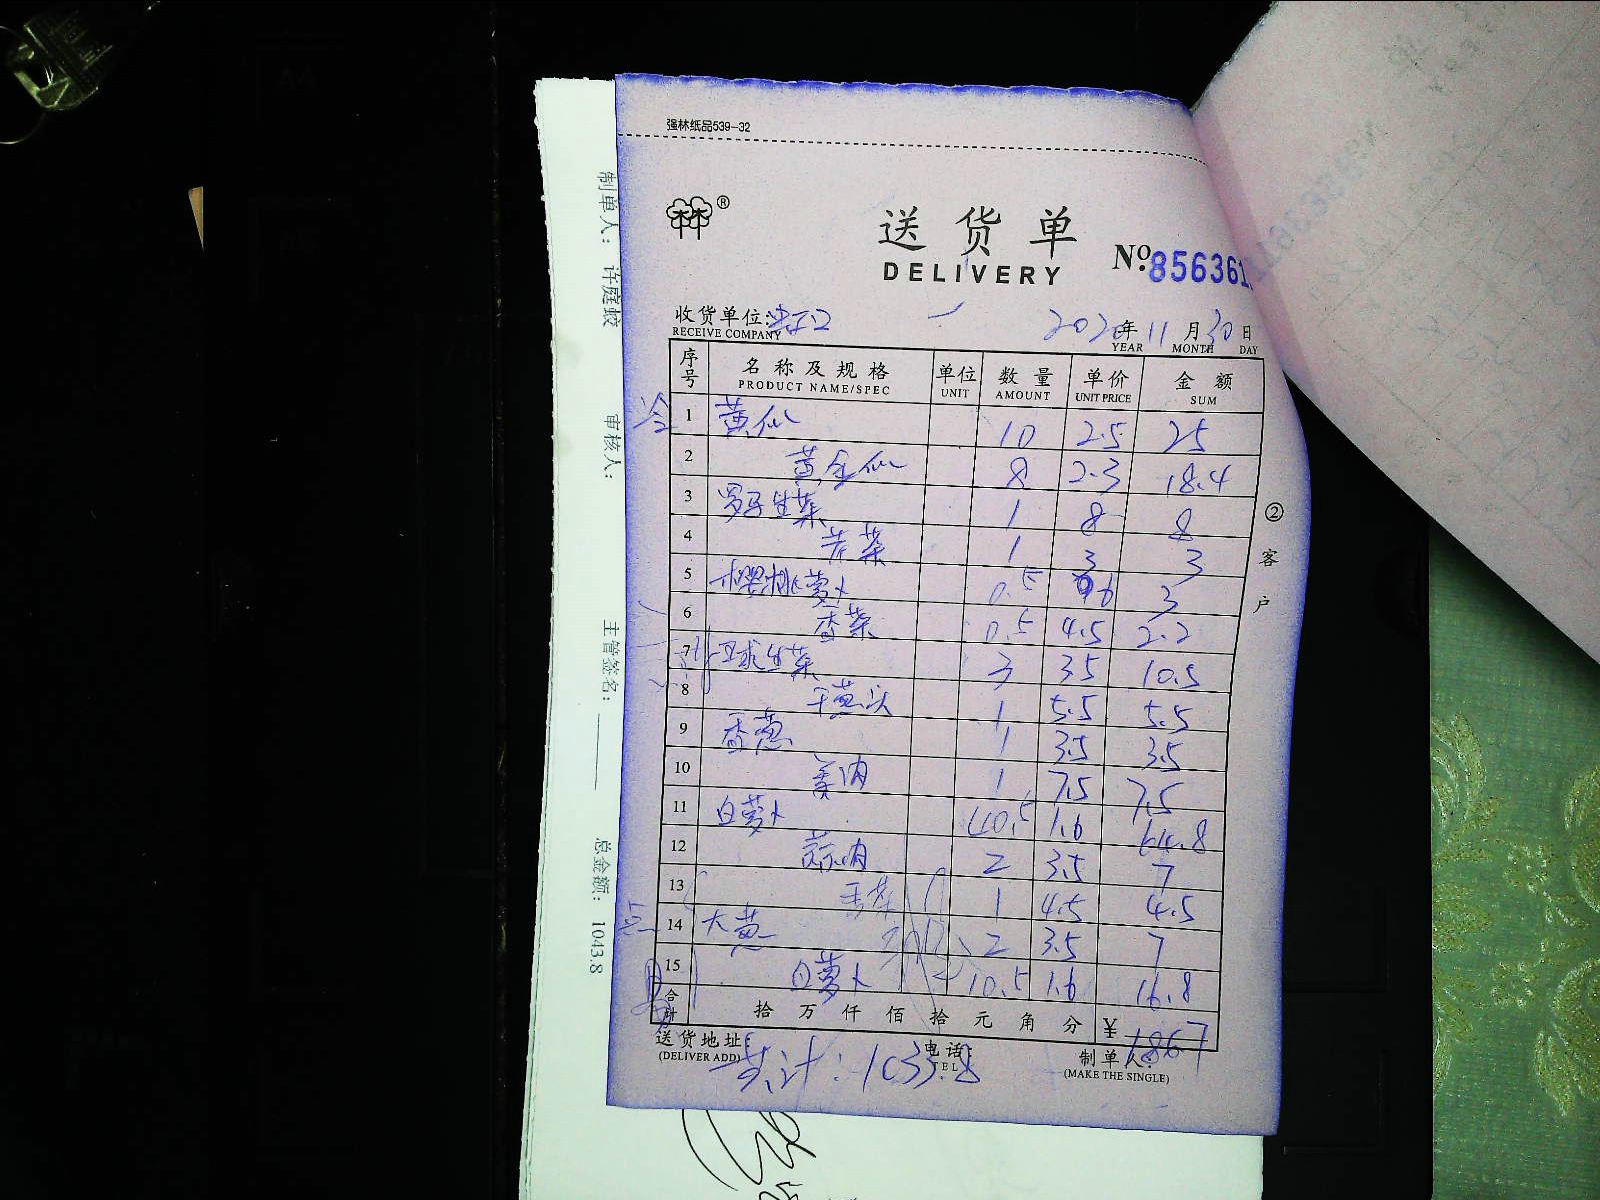 强林纸品539-32
林 ®
送货单
DELIVERY
№ 856361
收货单位:
RECEIVE COMPANY
2020年11月30日
YEAR MONTH DAY
序号 名称及规格 单位 数量 单价 金额
PRODUCT NAME/SPEC UNIT AMOUNT UNIT PRICE SUM
1 黄仙 10 2.5 25
2 黄金仙 8 2.3 18.4
3 罗马生菜 1 8 8
4 苦菜 1 3 3
5 樱桃萝卜 0.5 6 3
6 香菜 0.5 4.5 2.2
7 球生菜 3 3.5 10.5
8 干葱头 1 5.5 5.5
9 香葱 1 3.5 3.5
10 姜肉 1 7.5 7.5
11 白萝卜 40.5 1.6 64.8
12 蒜肉 2 3.5 7
13 香菜 1 4.5 4.5
14 大葱 2 3.5 7
15 白萝卜 10.5 1.6 16.8
合计 拾万仟佰拾元角分 ¥ 186.7
送货地址: 电话: 制单人:
(DELIVER ADD) TEL (MAKE THE SINGLE)
共计:1033.8
② 客户
制单人: 许庭蛟
审核人:
主管签名:
总金额: 1043.8